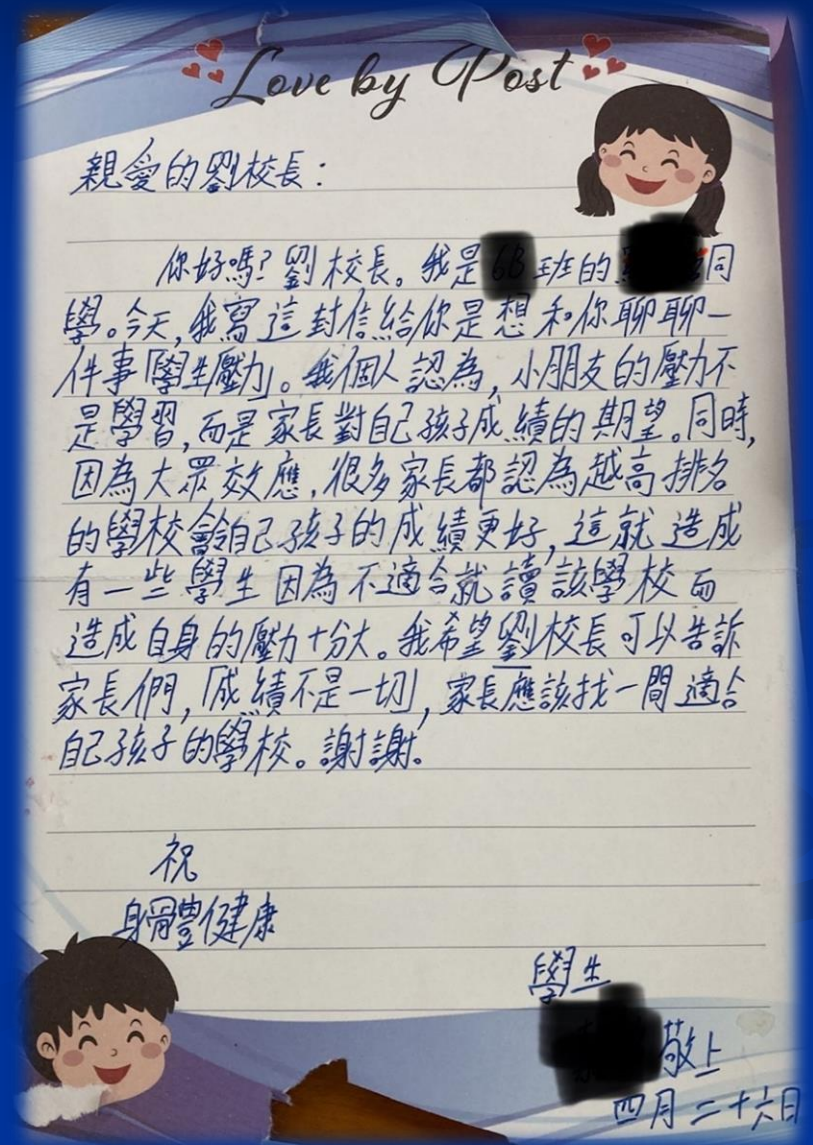 Love by Post
親愛的劉校長：
你好嗎？劉校長。我是6B班的同
學。今天，我寫這封信給你是想和你聊聊一
件事「學生壓力」。我個人認為，小朋友的壓力不
是學習，而是家長對自己孩子成績的期望。同時，
因為大眾效應，很多家長都認為越高排名
的學校會令自己孩子的成績更好，這就造成
有一些學生因為不適合就讀該學校而
造成自身的壓力十分大。我希望劉校長可以告訴
家長們，「成績不是一切」，家長應該找一間適合
自己孩子的學校。謝謝。
祝
身體健康
學生
敬上
四月二十六日